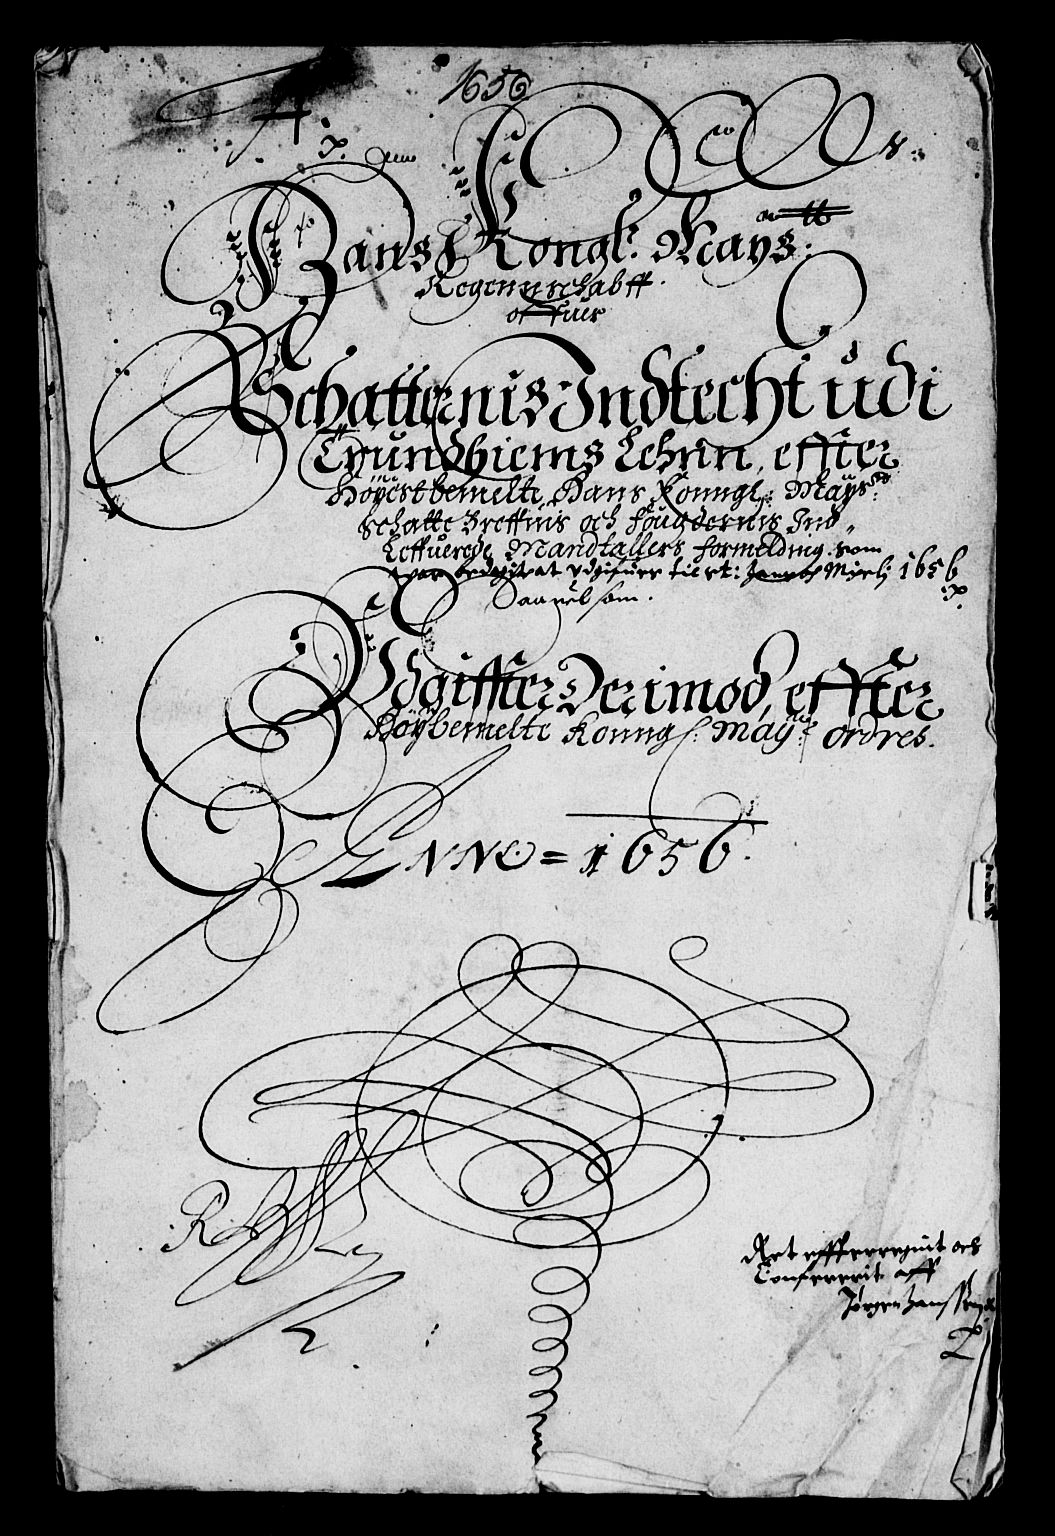 1656
Hans Kongl: Mays:tts
Regennschabff
offuer
Schatternis Indtecht udi
Trundhiems Lehnn, effter
Höyestbemelte Hans Konngl: Mays:
schatte Breffuis och fougdernis Ind
Leffuerede Mandtallers formelding. som
1656
Saauelsom.
Vdgiffter Derimod, effter
Höybemelte Konngl: May:ts ordres.
ANNO = 1656.
Ret effterregnit och
Confererit aff
Jørgen Janssen